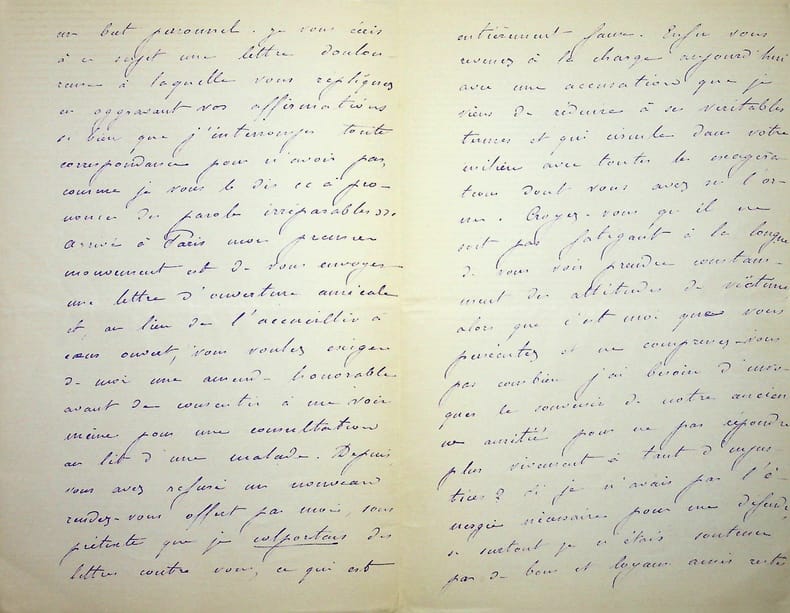 un but personnel. Je vous écris
à ce sujet une lettre doulou-
reuse à laquelle vous repliquez
en aggravant vos affirmations
si bien que j'interromps toute
correspondance pour n'avoir pas,
comme je vous le dis « à pro-
noncer des paroles irréparables ».
Arrivé à Paris mon premier
mouvement est de vous envoyer
une lettre d'ouverture amicale
et, au lieu de l'accueillir à
cœur ouvert, vous voulez exiger
de moi une amende honorable
avant de consentir à me voir
même pour une consultation
au lit d'une malade. Depuis
vous avez refusé un nouveau
rendez-vous offert par moi, sous
prétexte que je colportais des
lettres contre vous, ce qui est
entièrement faux. Enfin vous
revenez à la charge aujourd'hui
avec une accusation que je
viens de réduire à ses véritables
termes et qui circule dans votre
milieu avec toutes les exagéra-
tions dont vous avez su l'or-
ner. Croyez-vous qu'il ne
soit pas fatigant à la longue
de vous voir prendre constam-
ment des attitudes de victime
alors que c'est moi que vous
persécutez et ne comprenez-vous
pas combien j'ai besoin d'invo-
quer le souvenir de notre ancien-
ne amitié pour ne pas répondre
plus vivement à tant d'injus-
tices? Si je n'avais pas l'é-
nergie nécessaire pour me défendre
si surtout je n'étais soutenu
par de bons et loyaux amis restés